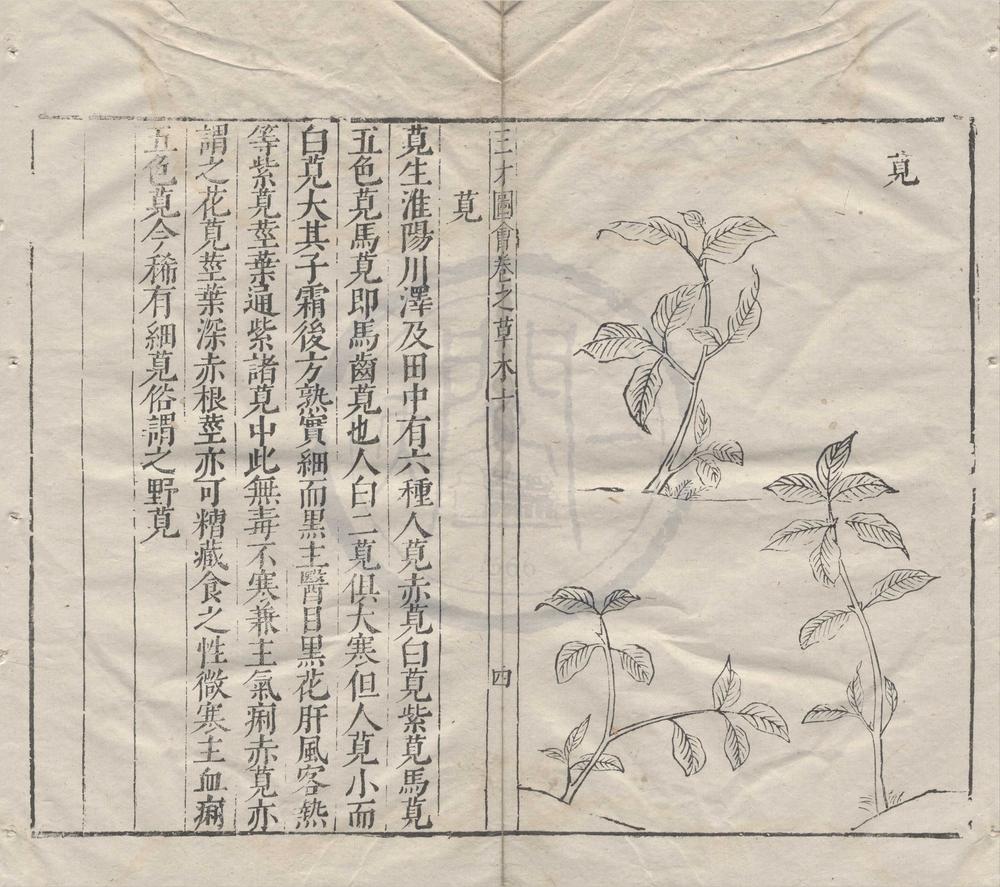 莧
三才圖會卷之草木十
四
莧
莧生淮陽川澤及田中有六種人莧赤莧白莧紫莧馬莧
五色莧馬莧即馬齒莧也人白二莧俱大寒但人莧小而
白莧大其子霜後方熟實細而黑主醫目黑花肝風客熱
等紫莧莖葉通紫諸莧中此無毒不寒兼主氣痢赤莧亦
謂之花莧莖葉深赤根莖亦可糟藏食之性微寒主血痢
五色莧今稀有細莧俗謂之野莧